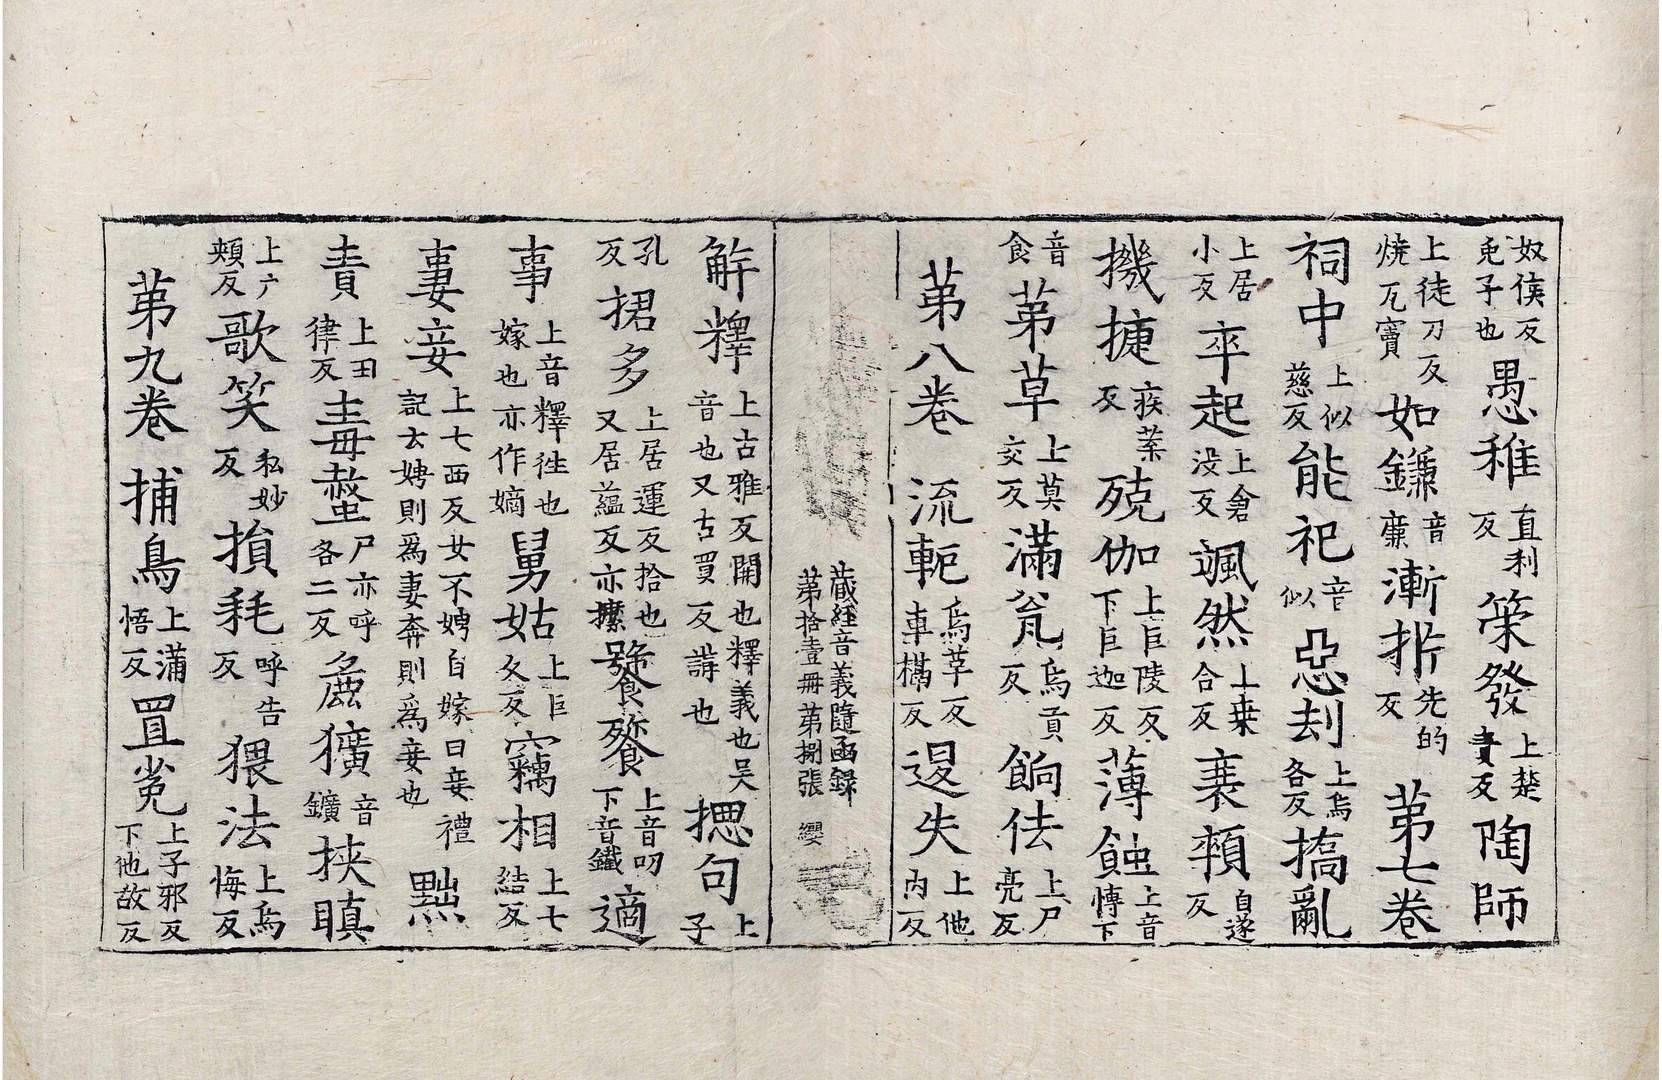 奴侯反兎子也愚稚直利反筞發上楚責反陶師
上徒刀反燒瓦竇如鐮音廉漸㭊先的反第七卷
祠中上似慈反能祀音似惡刦上烏各反撟亂
上居小反卒起上倉没反颯然上桒合反衰頼自遂反
機捷疾葉反殑伽上巨陵反下巨迦反薄蝕上音慱下
音食第草上莫交反滿瓮烏貢反餉佉上尸亮反
第八卷流軛烏革反車槅反退失上他内反
藏經音義隨函録
第拾壹冊第捌張 纓
解釋上古雅反開也釋義也吴音也又古買反講也揔句上子
孔反捃多上居運反拾也又居蘊反亦攈饕餮上音叨下音鐵適
事上音釋徃也嫁也亦作嫡舅姑上巨久反竊相上七結反
妻妾上七西反女不娉自嫁曰妾禮記云娉則爲妻奔則爲妾也黜
責上丑律反毒螫尸亦呼各二反麁獷音鑛挾瞋
上戶頰反歌笑私妙反損耗呼告反猥法上烏悔反
第九卷捕鳥上蒲悟反罝㝹上子邪反下他故反